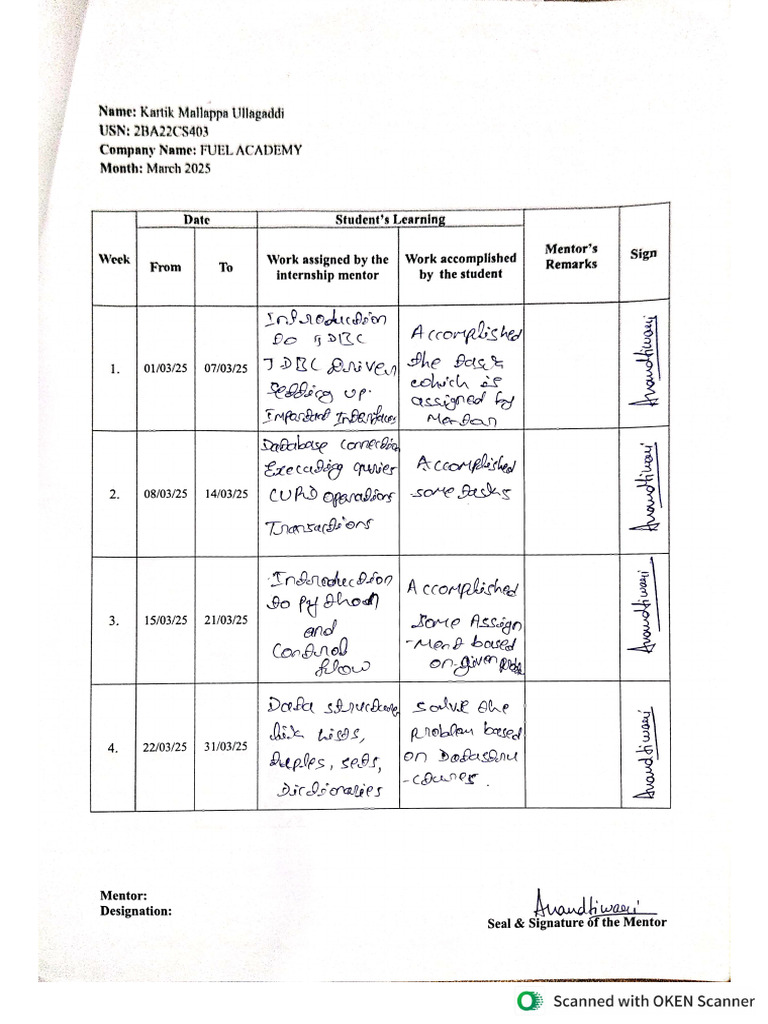 Name: Kartik Mallappa Ullagaddi
USN: 2BA22CS403
Company Name: FUEL ACADEMY
Month: March 2025
Week
Date
From
To
Student's Learning
Work assigned by the
internship mentor
Work accomplished
by the student
Mentor's
Remarks
Sign
1.
01/03/25
07/03/25
Introduction
to JDBC
JDBC Driver
setting up.
Important Interfaces
Accomplished
the task
which is
assigned by
Anandtiwari
2.
08/03/25
14/03/25
Database connection
Executing queries
CURD operations
Transactions
Accomplished
some tasks
Anandtiwari
3.
15/03/25
21/03/25
Introduction
to Python
and
Control
flow
Accomplished
some Assign
-ment based
on given
Anandtiwari
4.
22/03/25
31/03/25
Data structure
lists,
tuples, sets,
Dictionaries
solve the
problem based
on Datastru
-ctures.
Anandtiwari
Mentor:
Designation:
Anandtiwari
Seal & Signature of the Mentor
Scanned with OKEN Scanner